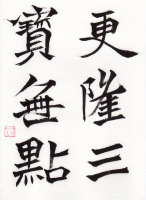 更隆三
寶無點